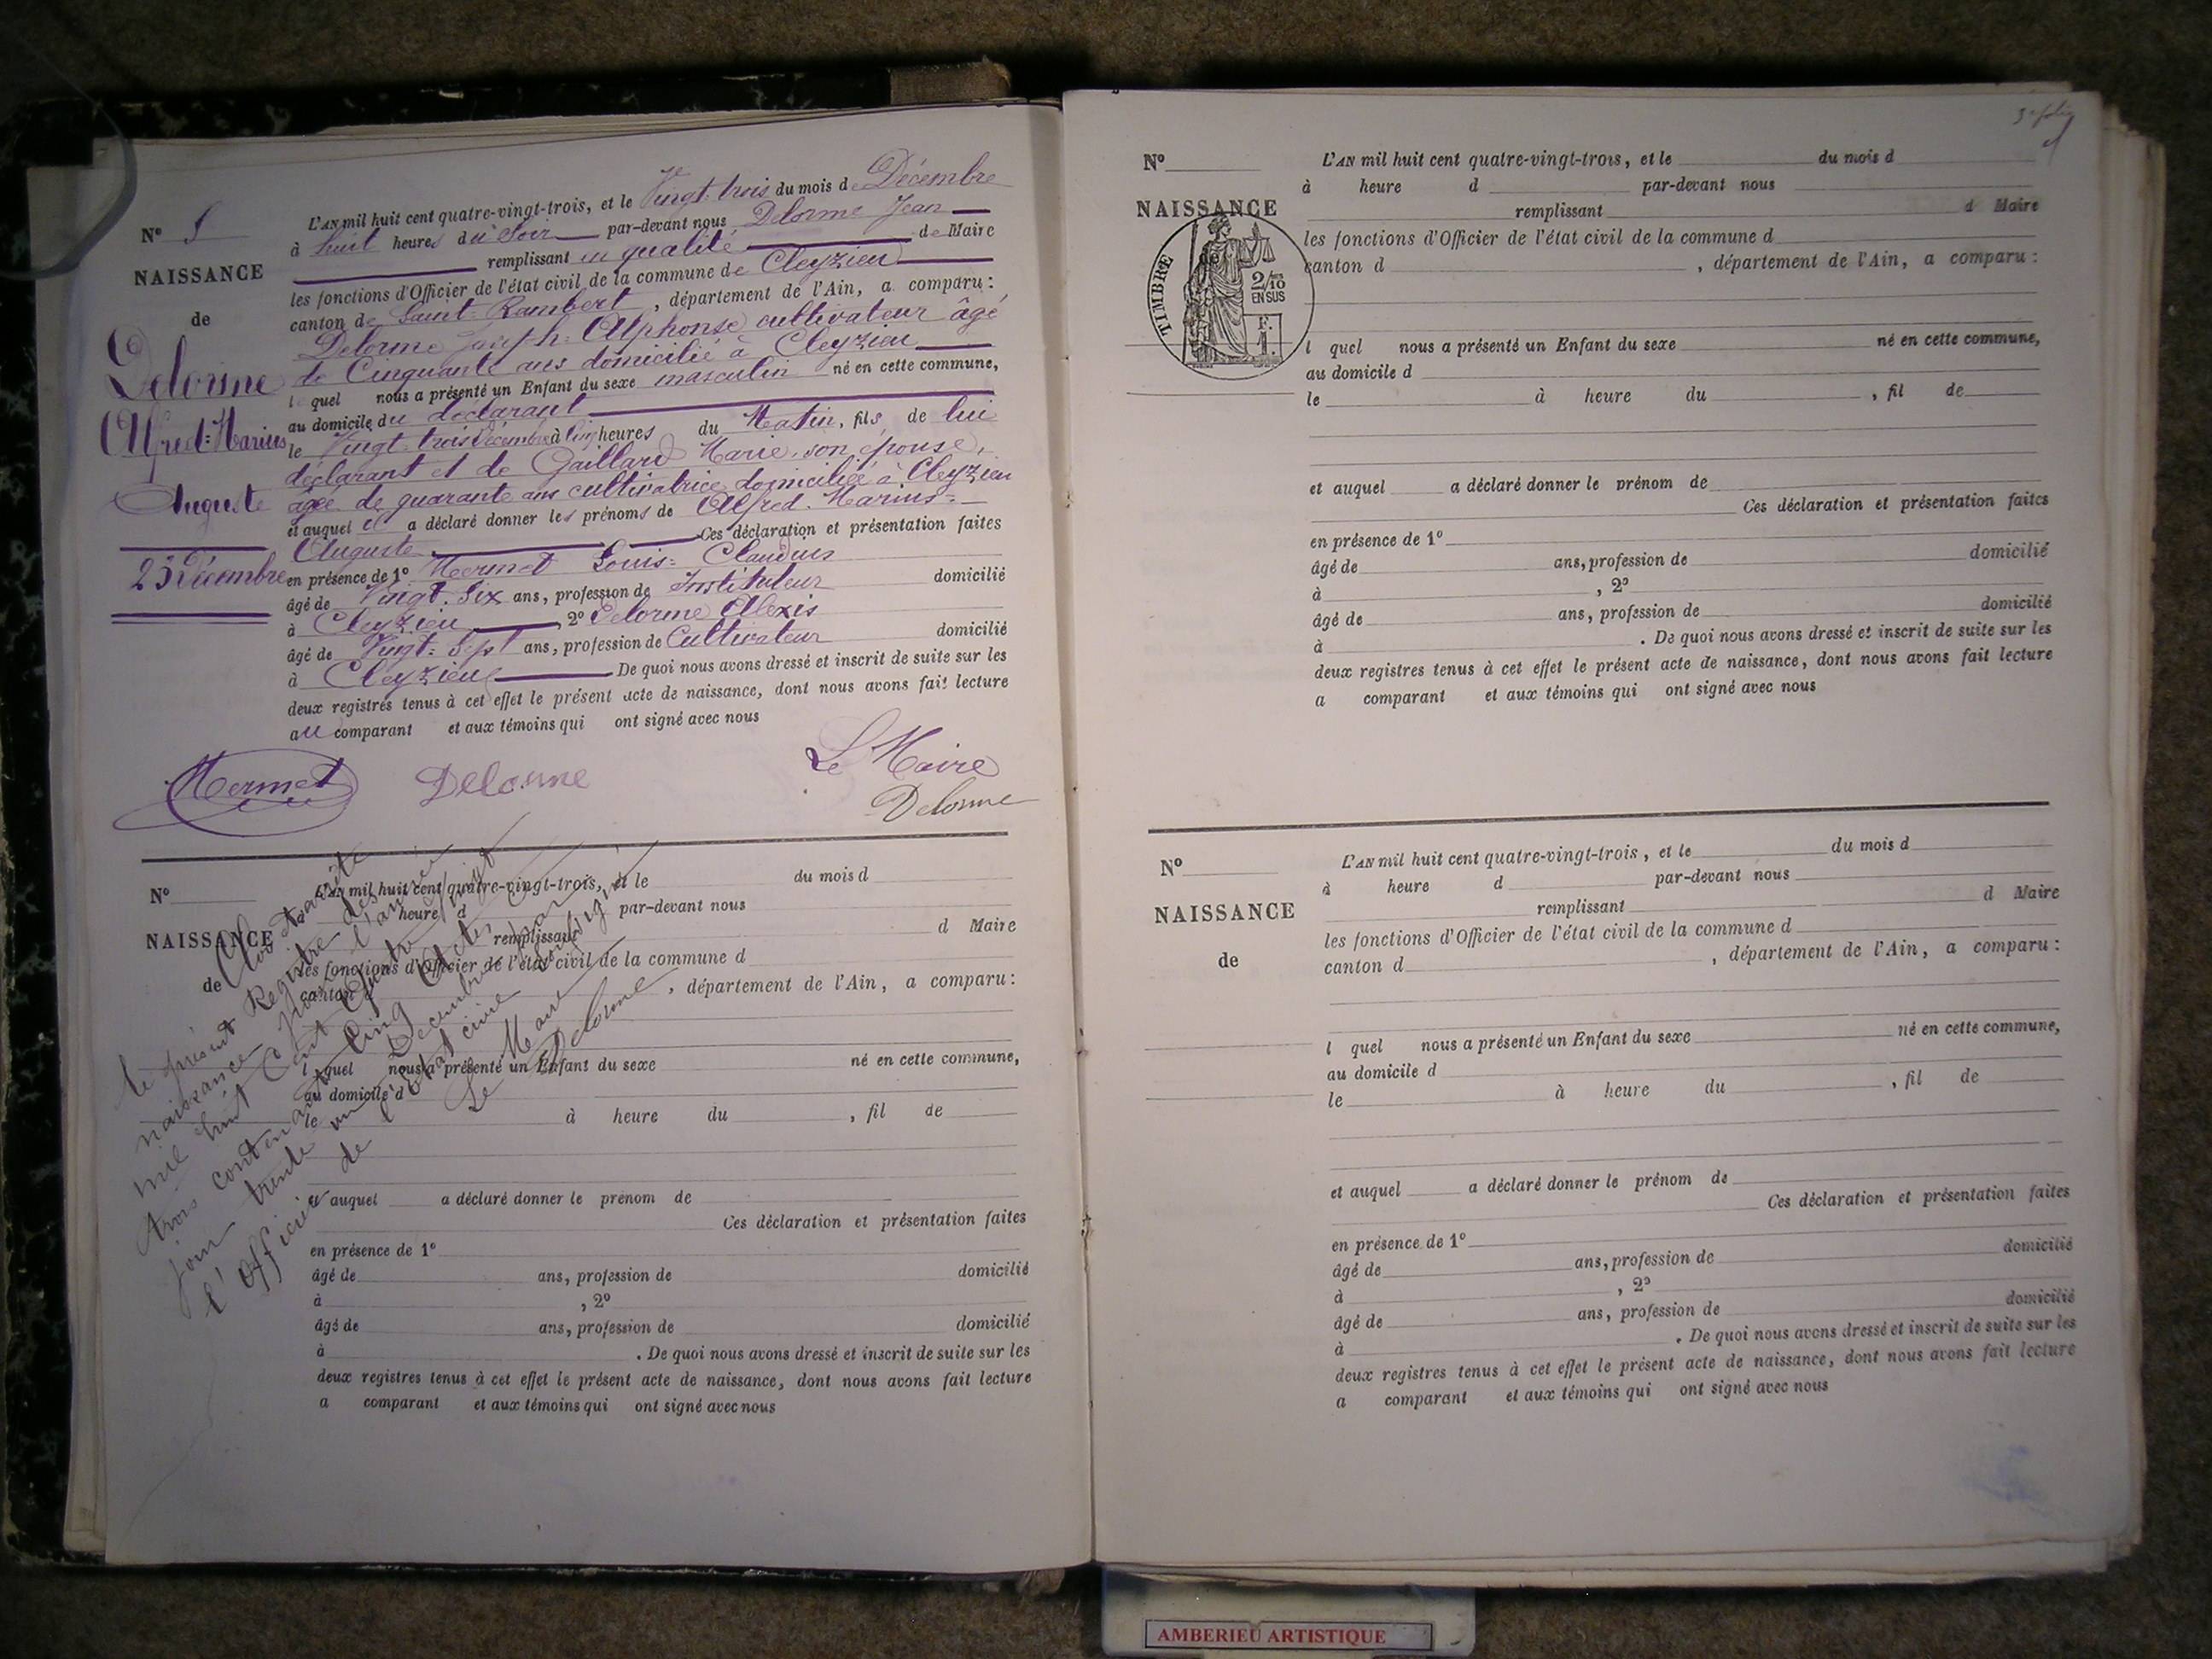 Nº 5
NAISSANCE
de
Delorme
Alfred=Marius
Auguste
23 Décembre
L'AN mil huit cent quatre-vingt-trois, et le Vingt-trois du mois de Décembre
à huit heures du Soir par-devant nous Delorme Jean
remplissant en qualité de Maire
les fonctions d'Officier de l'état civil de la commune de Cleyzieu
canton de Saint-Rambert, département de l'Ain, a comparu:
Delorme Joseph-Alphonse cultivateur âgé
de Cinquante ans domicilié à Cleyzieu
lequel nous a présenté un Enfant du sexe masculin né en cette commune,
au domicile du déclarant
le Vingt-trois Décembre à Cinq heures du Matin, fils de lui
déclarant et de Gaillard Marie, son épouse,
âgée de quarante ans cultivatrice domiciliée à Cleyzieu
et auquel il a déclaré donner les prénoms de Alfred-Marius=
Auguste Ces déclaration et présentation faites
en présence de 1º Mermet Louis=Claudius
âgé de Vingt-Six ans, profession de Instituteur domicilié
à Cleyzieu, 2º Delorme Alexis
âgé de Vingt=Sept ans, profession de Cultivateur domicilié
à Cleyzieu De quoi nous avons dressé et inscrit de suite sur les
deux registres tenus à cet effet le présent acte de naissance, dont nous avons fait lecture
au comparant et aux témoins qui ont signé avec nous
Mermet Delorme Le Maire
Delorme
Nº
NAISSANCE
de
L'AN mil huit cent quatre-vingt-trois, et le du mois d
heure d par-devant nous
remplissant d Maire
les fonctions d'Officier de l'état civil de la commune d
canton d , département de l'Ain, a comparu:
l quel nous a présenté un Enfant du sexe né en cette commune,
au domicile d
le à heure du , fil de
et auquel a déclaré donner le prénom de
Ces déclaration et présentation faites
en présence de 1º
âgé de ans, profession de domicilié
à , 2º
âgé de ans, profession de domicilié
à . De quoi nous avons dressé et inscrit de suite sur les
deux registres tenus à cet effet le présent acte de naissance, dont nous avons fait lecture
a comparant et aux témoins qui ont signé avec nous
Clos et arrêté
le présent Registre des
naissances pour l'année
mil huit Cent Quatre Vingt
trois contenant Cinq Actes
jour trente un Décembre par
l'Officier de l'état civil soussigné
Le Maire
Delorme
3e folio
Nº
NAISSANCE
TIMBRE
2/10
EN SUS
L'AN mil huit cent quatre-vingt-trois, et le du mois d
à heure d par-devant nous
remplissant d Maire
les fonctions d'Officier de l'état civil de la commune d
canton d , département de l'Ain, a comparu:
l quel nous a présenté un Enfant du sexe né en cette commune,
au domicile d
le à heure du , fil de
et auquel a déclaré donner le prénom de
Ces déclaration et présentation faites
en présence de 1º
âgé de ans, profession de domicilié
à , 2º
âgé de ans, profession de domicilié
à . De quoi nous avons dressé et inscrit de suite sur les
deux registres tenus à cet effet le présent acte de naissance, dont nous avons fait lecture
a comparant et aux témoins qui ont signé avec nous
Nº
NAISSANCE
de
L'AN mil huit cent quatre-vingt-trois, et le du mois d
à heure d par-devant nous
remplissant d Maire
les fonctions d'Officier de l'état civil de la commune d
canton d , département de l'Ain, a comparu:
l quel nous a présenté un Enfant du sexe né en cette commune,
au domicile d
le à heure du , fil de
et auquel a déclaré donner le prénom de
Ces déclaration et présentation faites
en présence de 1º
âgé de ans, profession de domicilié
à , 2º
âgé de ans, profession de domicilié
à . De quoi nous avons dressé et inscrit de suite sur les
deux registres tenus à cet effet le présent acte de naissance, dont nous avons fait lecture
a comparant et aux témoins qui ont signé avec nous
AMBERIEU ARTISTIQUE